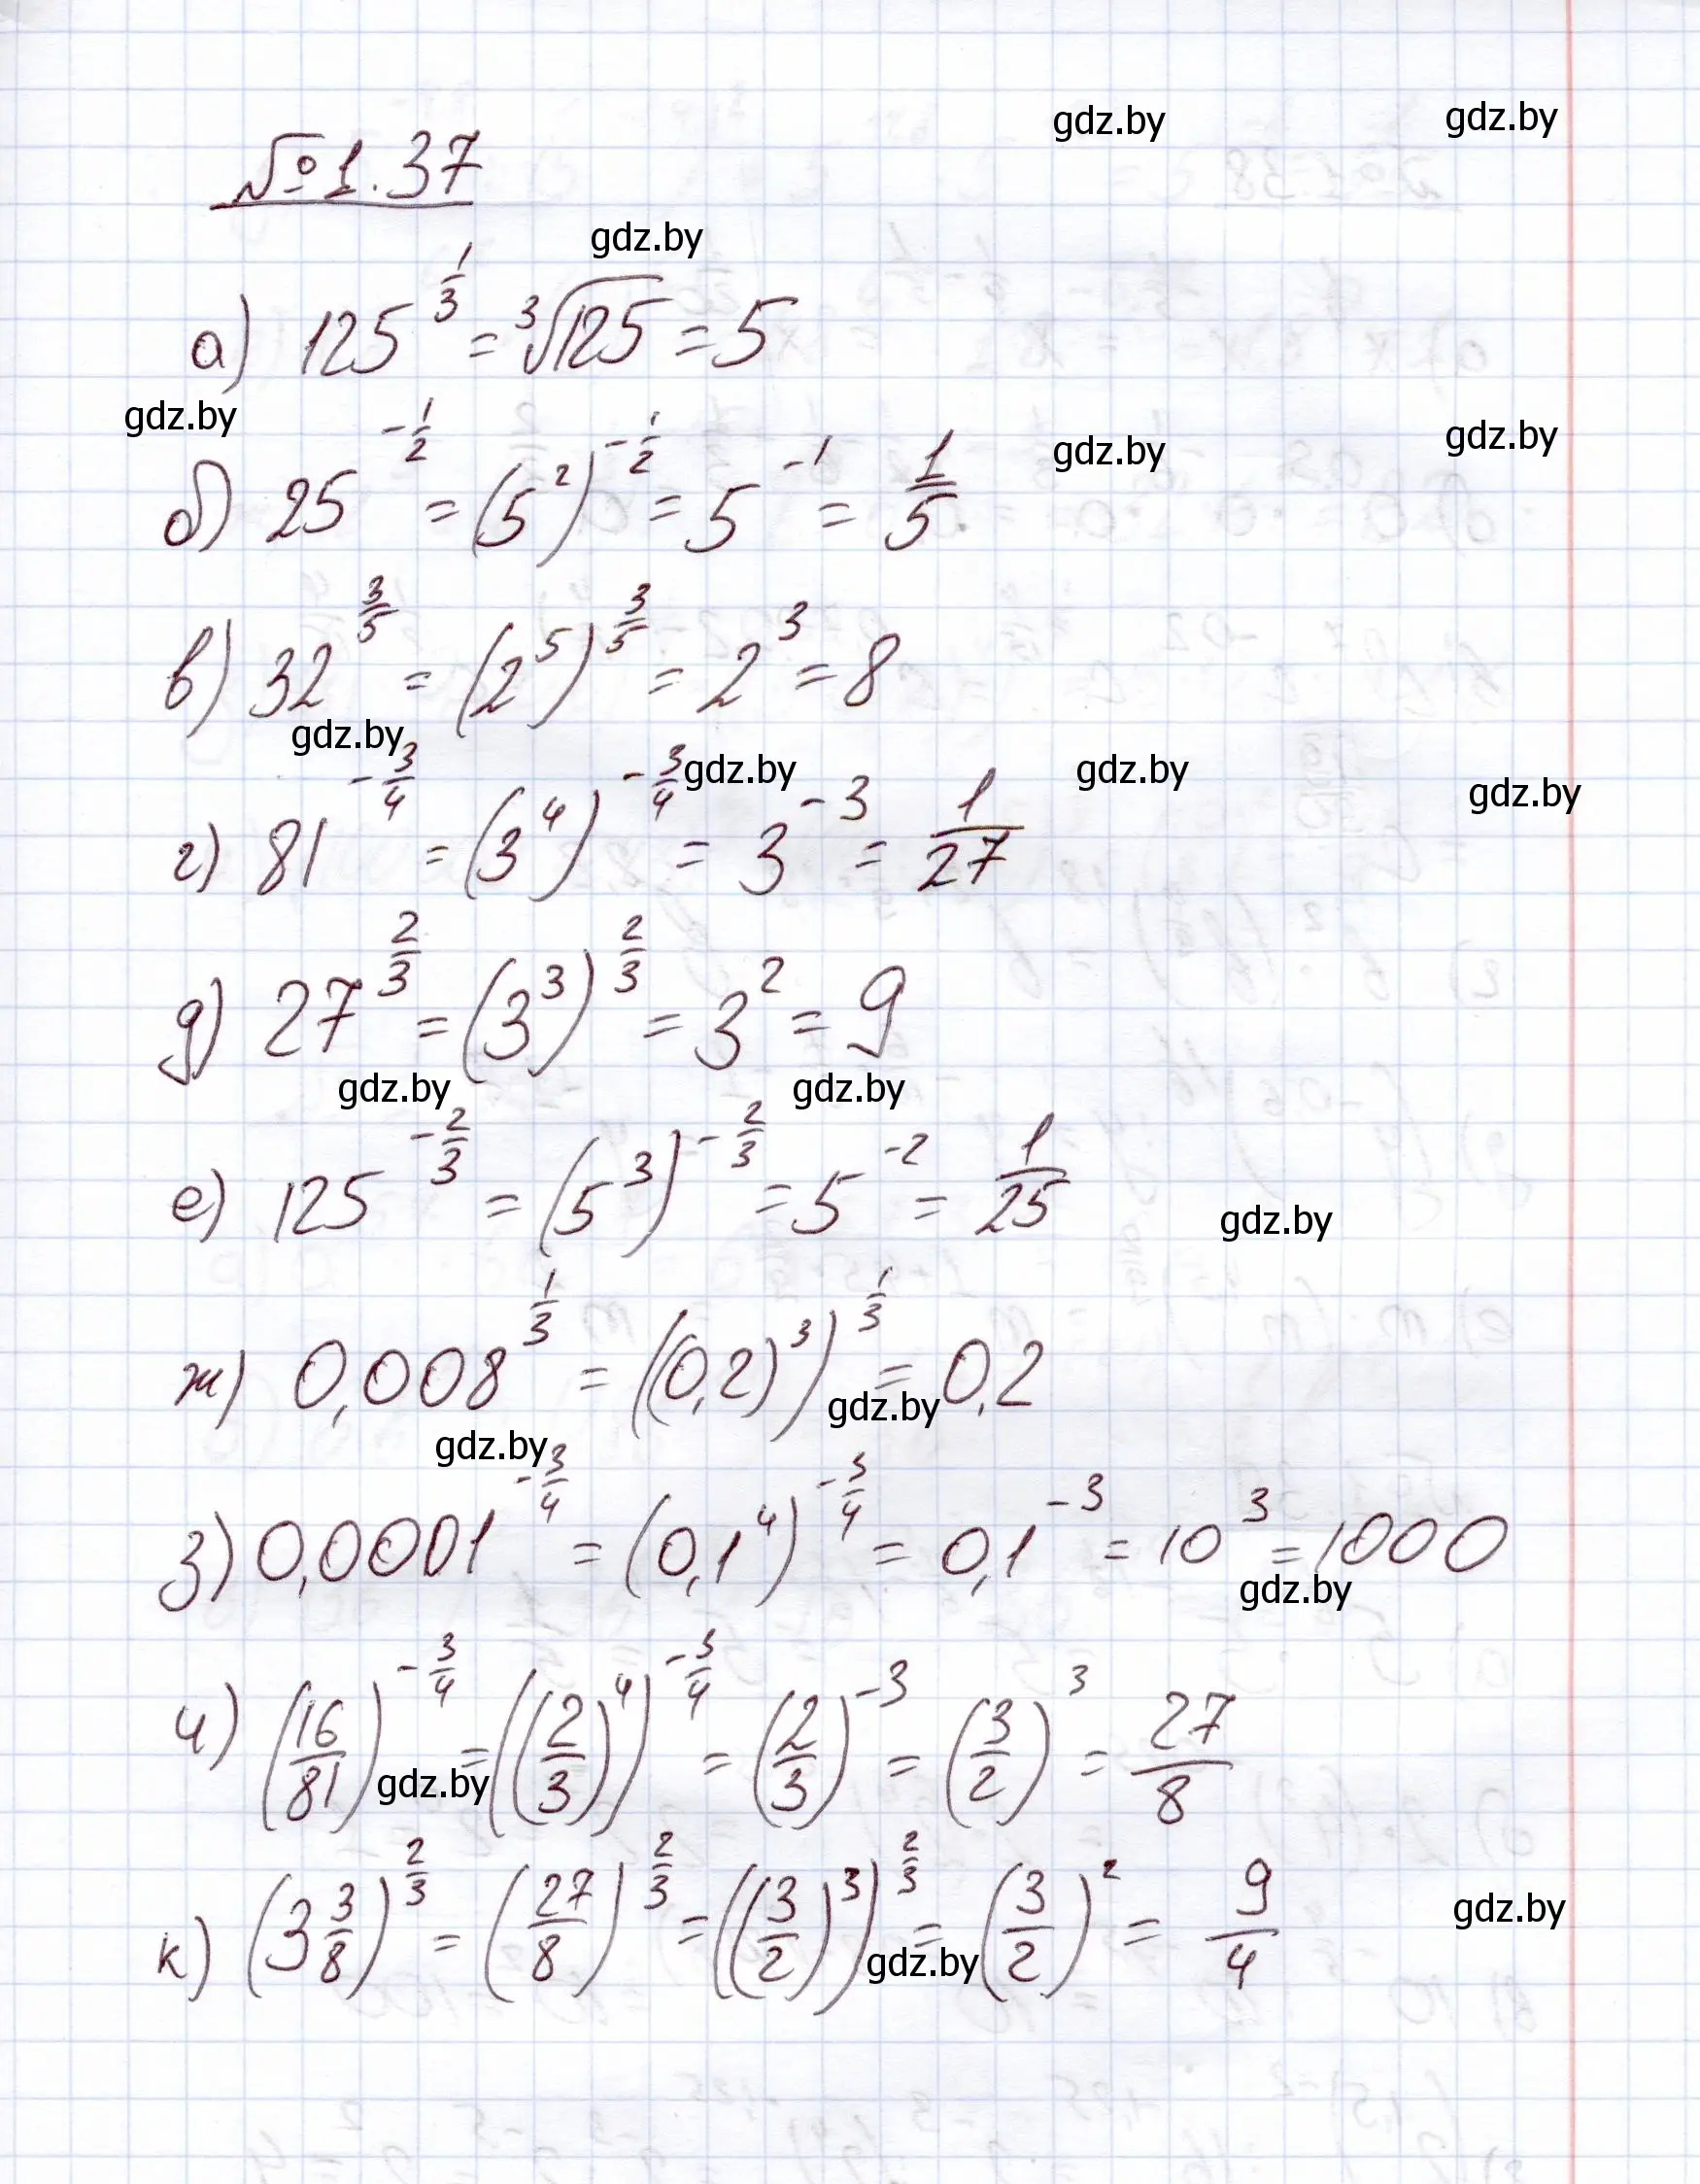 gdz.by gdz.by
№ 1.37
gdz.by
а) 125^(1/3) = ∛125 = 5
gdz.by gdz.by gdz.by
б) 25^(-1/2) = (5^2)^(-1/2) = 5^(-1) = 1/5
в) 32^(3/5) = (2^5)^(3/5) = 2^3 = 8
gdz.by gdz.by gdz.by gdz.by
г) 81^(-3/4) = (3^4)^(-3/4) = 3^(-3) = 1/27
д) 27^(2/3) = (3^3)^(2/3) = 3^2 = 9
gdz.by gdz.by
е) 125^(-2/3) = (5^3)^(-2/3) = 5^(-2) = 1/25
gdz.by
ж) 0,008^(1/3) = ((0,2)^3)^(1/3) = 0,2
gdz.by gdz.by
з) 0,0001^(-3/4) = (0,1^4)^(-3/4) = 0,1^(-3) = 10^3 = 1000
gdz.by
и) (16/81)^(-3/4) = ((2/3)^4)^(-3/4) = (2/3)^(-3) = (3/2)^3 = 27/8
gdz.by
к) (3 3/8)^(2/3) = (27/8)^(2/3) = ((3/2)^3)^(2/3) = (3/2)^2 = 9/4
gdz.by gdz.by